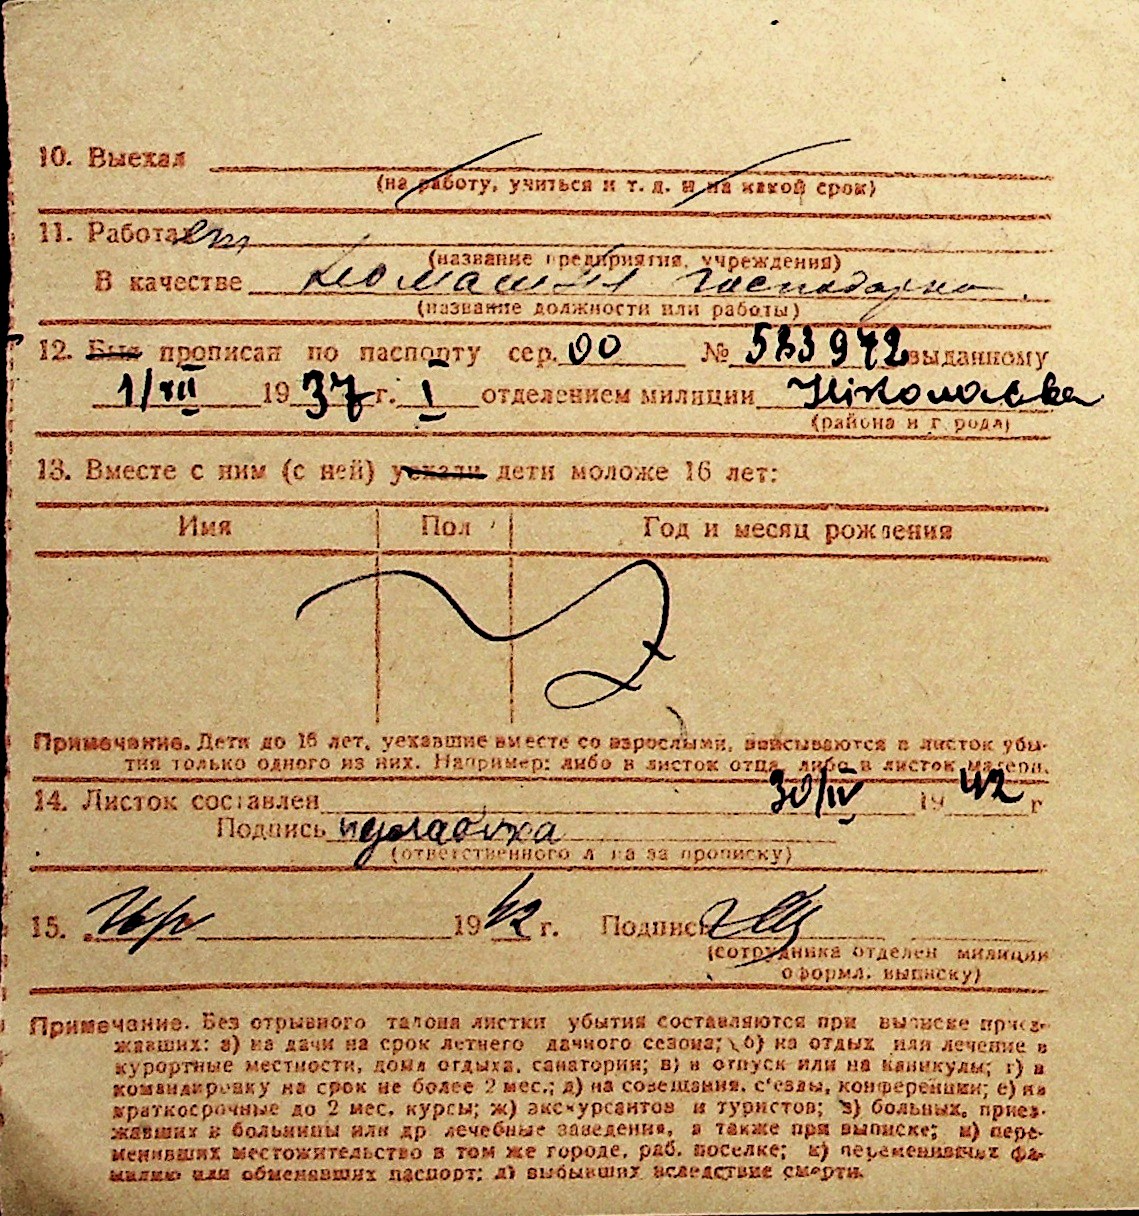 10. Выехал
(на работу, учиться и т. д. и на какой срок)
11. Работает
(название предприятия, учреждения)
В качестве домашня господарка.
(название должности или работы)
12. Был прописан по паспорту сер. 00 № 583972 выданному
1/XII 1937 г. I отделением милиции Ніколаєва
(района и города)
13. Вместе с ним (с ней) уехали дети моложе 16 лет:
Имя Пол Год и месяц рождения
Примечание. Дети до 16 лет, уехавшие вместе со взрослыми, вписываются в листок убы-
тия только одного из них. Например: либо в листок отца, либо в листок матери.
14. Листок составлен 30/IV 1942 г
Подпись
(ответственного лица за прописку)
15. 1942 г. Подпись
(сотрудника отделен милиции
оформл. выписку)
Примечание. Без отрывного талона листки убытия составляются при выписке приез-
жавших: а) на дачи на срок летнего дачного сезона; б) на отдых или лечение в
курортные местности, дома отдыха, санатории; в) в отпуск или на каникулы; г) в
командировку на срок не более 2 мес.; д) на совещания, с'езды, конференции; е) на
краткосрочные до 2 мес. курсы; ж) экскурсантов и туристов; з) больных, приез-
жавших в больницы или др лечебные заведения, а также при выписке; и) пере-
менивших местожительство в том же городе, раб. поселке; к) переменивших фа-
милию или обменявших паспорт; л) выбывших вследствие смерти.